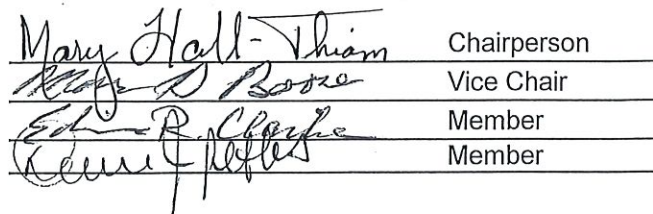 Mary Hall-Thiam Chairperson
Booze Vice Chair
Edwin R. Clarke Member
Member